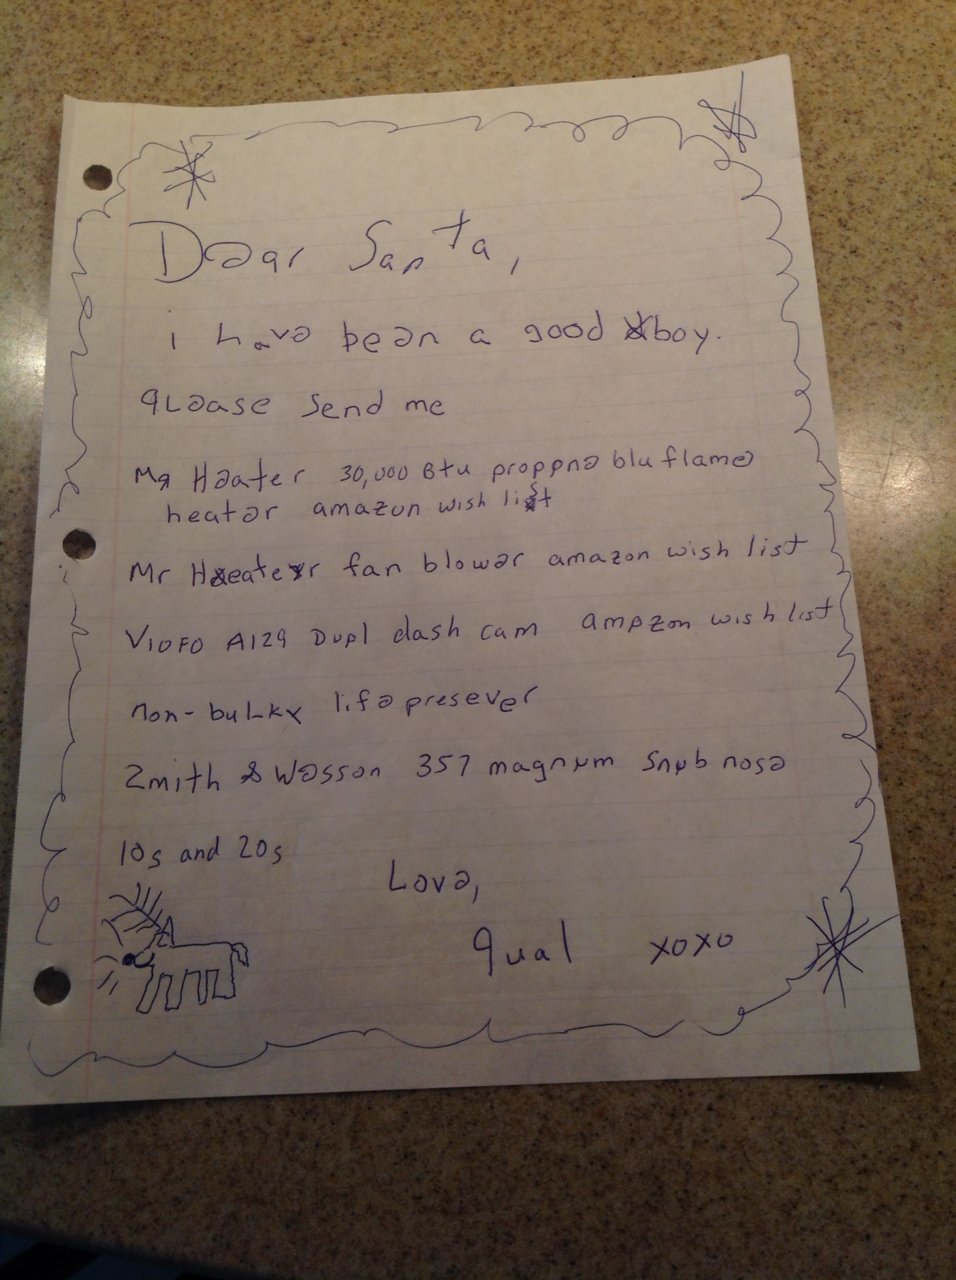 Dear Santa,
i have been a good boy.
qLease send me
Mr Heater 30,000 Btu proppne blu flame
heater amazon wish list
Mr Heater fan blower amazon wish list
VIOFO A129 Dupl dash cam ampzon wish list
non-buLky life presever
2mith & Wesson 357 magnum snub nose
10s and 20s
Love,
qual xoxo